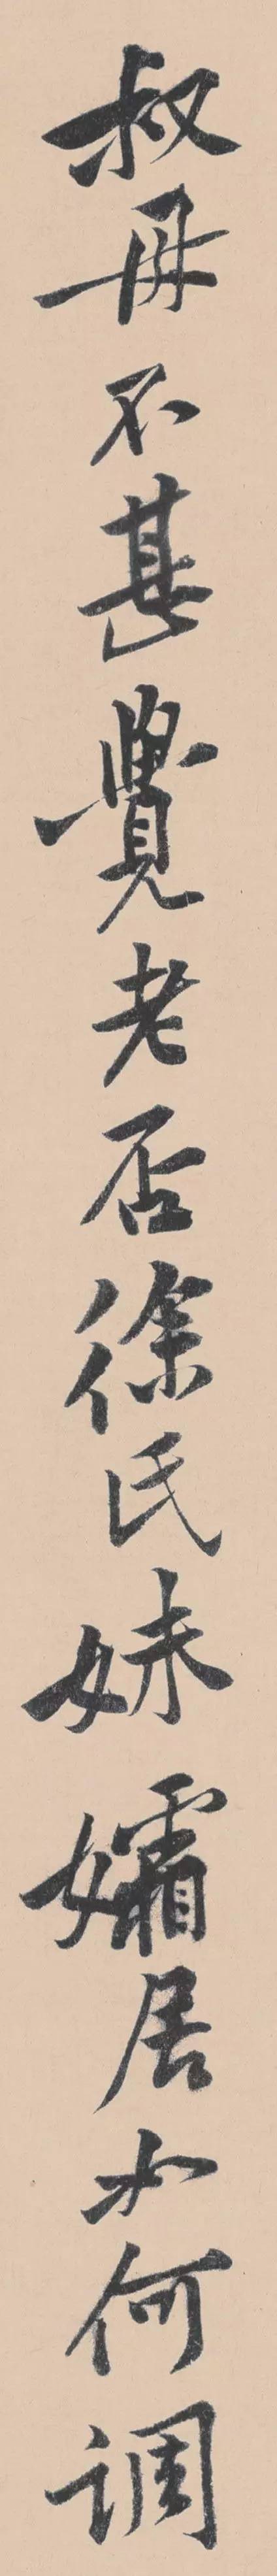 叔母不甚覺老否徐氏妹孀居如何調